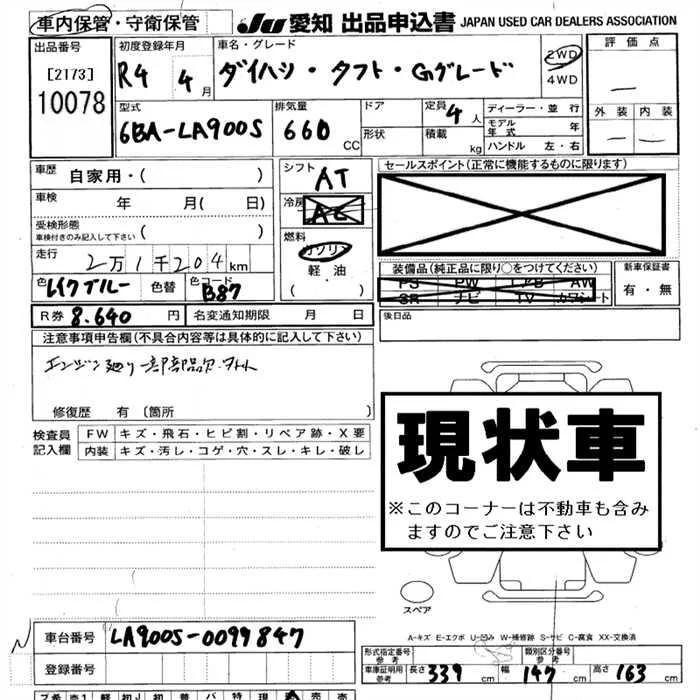 車内保管・守衛保管 JU 愛知 出品申込書 JAPAN USED CAR DEALERS ASSOCIATION
出品番号 初度登録年月 車名・グレード 評価点
[2173] R4 4月 ダイハツ・タフト・Gグレード 2WD
10078 4WD
型式 排気量 ドア 定員 ディーラー・並行 外装 内装
6BA-LA900S 660 CC 形状 4人 モデル年式 年
積載 kg ハンドル 左・右
車歴 自家用・( ) シフト AT セールスポイント(正常に機能するものに限ります)
車検 年 月( 日) 冷房 AC
受検形態 ( )
車検付きのみ記入して下さい
燃料 ガソリン
走行 2万1千204km 軽油 装備品(純正品に限り○をつけてください) 新車保証書
色 レイクブルー 色替 色コード B87 ( ・ ) PS PW エアB AW 有・無
SR ナビ TV カワシート
R券 8.640円 名変通知期限 月 日 後日品
注意事項申告欄(不具合内容等は具体的に記入して下さい)
エンジン廻り一部部品欠
修復歴 有 〔箇所 〕
現状車
※このコーナーは不動車も含み
ますのでご注意下さい
検査員 FW キズ・飛石・ヒビ割・リペア跡・X要
記入欄 内装 キズ・汚し・コゲ・穴・スレ・キレ・破し
スペア
A-キズ E-エクボ U-凹み W-補修跡 S-サビ C-腐食 XX-交換済
車台番号 LA900S-0099847
登録番号
形式指定番号 参考 類別区分番号 参考
車庫証明用参考 長さ 339 cm 幅 147 cm 高さ 163 cm